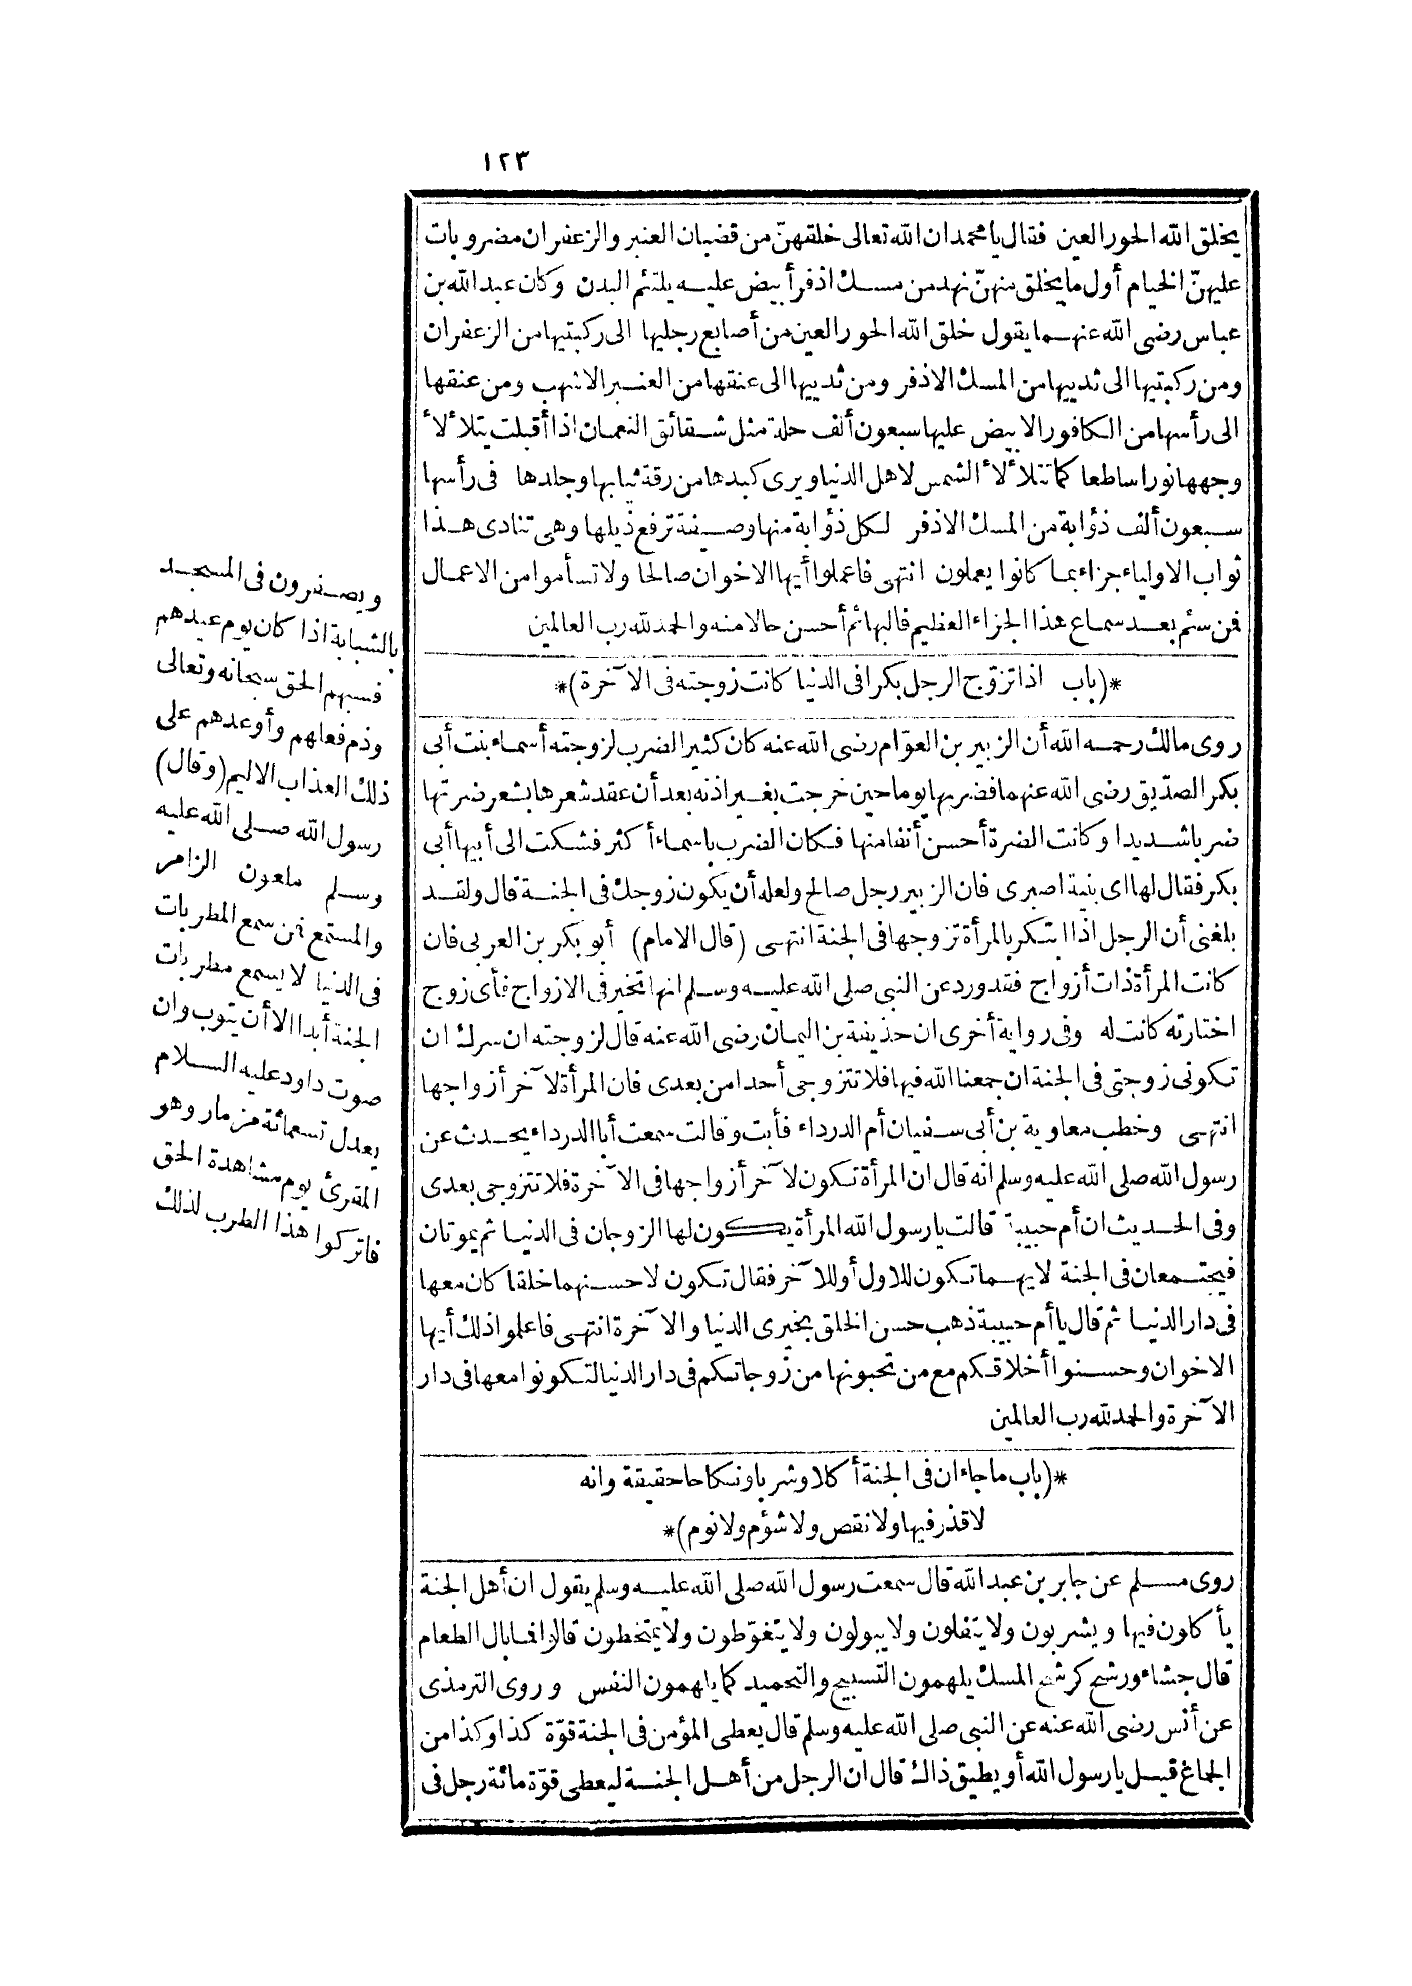 ١٢٣
يخلق الله الحور العين فقال يا محمد ان الله تعالى خلقهنّ من قضبان العنبر والزعفران مضروبات
عليهنّ الخيام أول ما يخلق منهنّ نهد من مسك اذفر أبيض عليه يلتئم البدن وكان عبد الله بن
عباس رضى الله عنهما يقول خلق الله الحور العين من أصابع رجليها الى ركبتيها من الزعفران
ومن ركبتيها الى ثدييها من المسك الاذفر ومن ثدييها الى عنقها من العنبر الاشهب ومن عنقها
الى رأسها من الكافور الابيض عليها سبعون ألف حلة مثل شقائق النعمان اذا أقبلت يتلألأ
وجهها نورا ساطعا كما تتلألأ الشمس لاهل الدنيا ويرى كبدها من رقة ثيابها وجلدها فى رأسها
سبعون ألف ذؤابة من المسك الاذفر لكل ذؤابة منها وصيفة ترفع ذيلها وهى تنادى هذا
ثواب الاولياء جزاء بما كانوا يعملون انتهى فاعملوا أيها الاخوان صالحا ولا تسأموا من الاعمال
فمن سئم بعد سماع هذا الجزاء العظيم فالبهائم أحسن حالا منه والحمد لله رب العالمين
*(باب اذا تزوج الرجل بكرا فى الدنيا كانت زوجته فى الآخرة)*
روى مالك رحمه الله أن الزبير بن العوّام رضى الله عنه كان كثير الضرب لزوجته أسماء بنت أبى
بكر الصدّيق رضى الله عنهما فضربها يوما حين خرجت بغير اذنه بعد أن عقد شعرها بشعر ضرتها
ضربا شديدا وكانت الضرة أحسن أنفا منها فكان الضرب باسماء أكثر فشكت الى أبيها أبى
بكر فقال لها اى بنية اصبرى فان الزبير رجل صالح ولعله أن يكون زوجك فى الجنة قال ولقد
بلغنى أن الرجل اذا ابتكر بالمرأة تزوجها فى الجنة انتهى (قال الامام) أبو بكر بن العربى فان
كانت المرأة ذات أزواج فقد ورد عن النبى صلى الله عليه وسلم انها تخير فى الازواج فأى زوج
اختارته كانت له وفى رواية أخرى ان حذيفة بن اليمان رضى الله عنه قال لزوجته ان سرك ان
تكونى زوجتى فى الجنة ان جمعنا الله فيها فلا تتزوجى أحدا من بعدى فان المرأة لآخر أزواجها
انتهى وخطب معاوية بن أبى سفيان أم الدرداء فأبت وقالت سمعت أبا الدرداء يحدث عن
رسول الله صلى الله عليه وسلم انه قال ان المرأة تكون لآخر أزواجها فى الآخرة فلا تتزوجى بعدى
وفى الحديث ان أم حبيبة قالت يا رسول الله المرأة يكون لها الزوجان فى الدنيا ثم يموتان
فيجتمعان فى الجنة لايهما تكون للاول أو للآخر فقال تكون لاحسنهما خلقا كان معها
فى دار الدنيا ثم قال يا أم حبيبة ذهب حسن الخلق بخيرى الدنيا والآخرة انتهى فاعلموا ذلك أيها
الاخوان وحسنوا أخلاقكم مع من تحبونها من زوجاتكم فى دار الدنيا لتكونوا معها فى دار
الآخرة والحمد لله رب العالمين
*(باب ما جاء ان فى الجنة أكلا وشربا ونكاحا حقيقة وانه
لا قذر فيها ولا نقص ولا شؤم ولا نوم)*
روى مسلم عن جابر بن عبد الله قال سمعت رسول الله صلى الله عليه وسلم يقول ان أهل الجنة
يأكلون فيها ويشربون ولا يتفلون ولا يبولون ولا يتغوّطون ولا يمتخطون قالوا فما بال الطعام
قال جشاء ورشح كرشح المسك يلهمون التسبيح والتحميد كما يلهمون النفس وروى الترمذى
عن أنس رضى الله عنه عن النبى صلى الله عليه وسلم قال يعطى المؤمن فى الجنة قوّة كذا وكذا من
الجماع قيل يا رسول الله أو يطيق ذاك قال ان الرجل من أهل الجنة ليعطى قوّة مائة رجل فى
ويصفرون فى المسجد
بالشبابة اذا كان يوم عيدهم
فسبهم الحق سبحانه وتعالى
وذم فعلهم وأوعدهم على
ذلك العذاب الاليم (وقال)
رسول الله صلى الله عليه
وسلم ملعون الزامر
والمستمع فمن سمع المطربات
فى الدنيا لا يسمع مطربات
الجنة أبدا الا أن يتوب وان
صوت داود عليه السلام
يعدل تسعمائة مزمار وهو
المقرئ يوم مشاهدة الحق
فاتركوا هذا الطرب لذلك